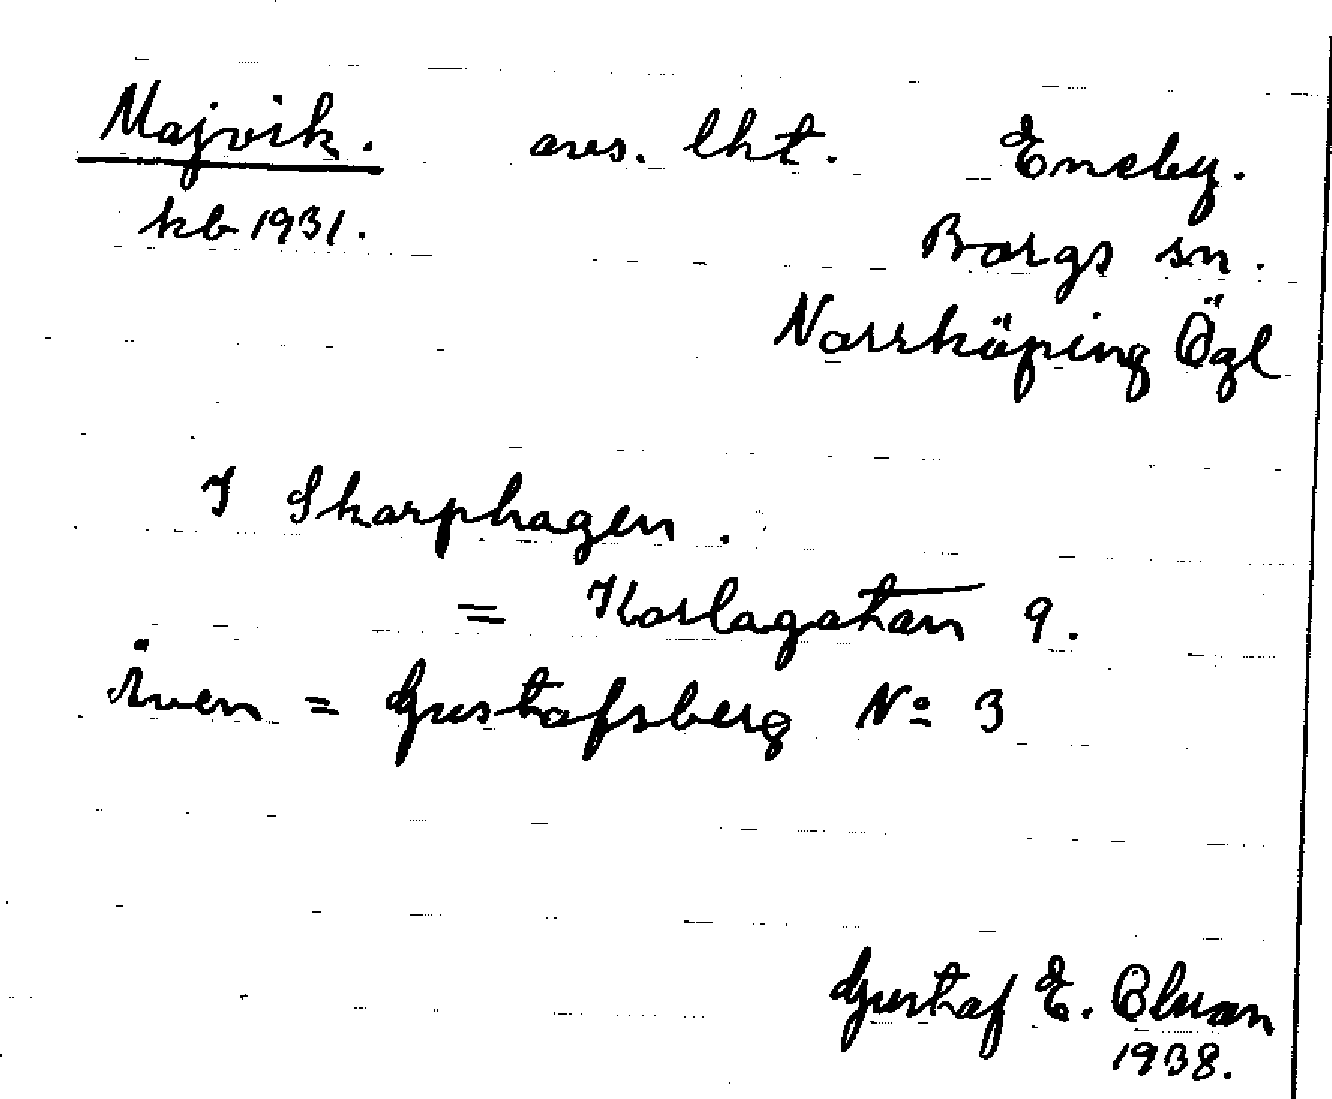 Majvik. avs. lht. Eneby.
kb 1931. Borgs sn.
Norrköping Ögl
I Skarphagen.
= Karlagatan 9.
Även = Gustafsberg No 3
Gustaf E.
1938.